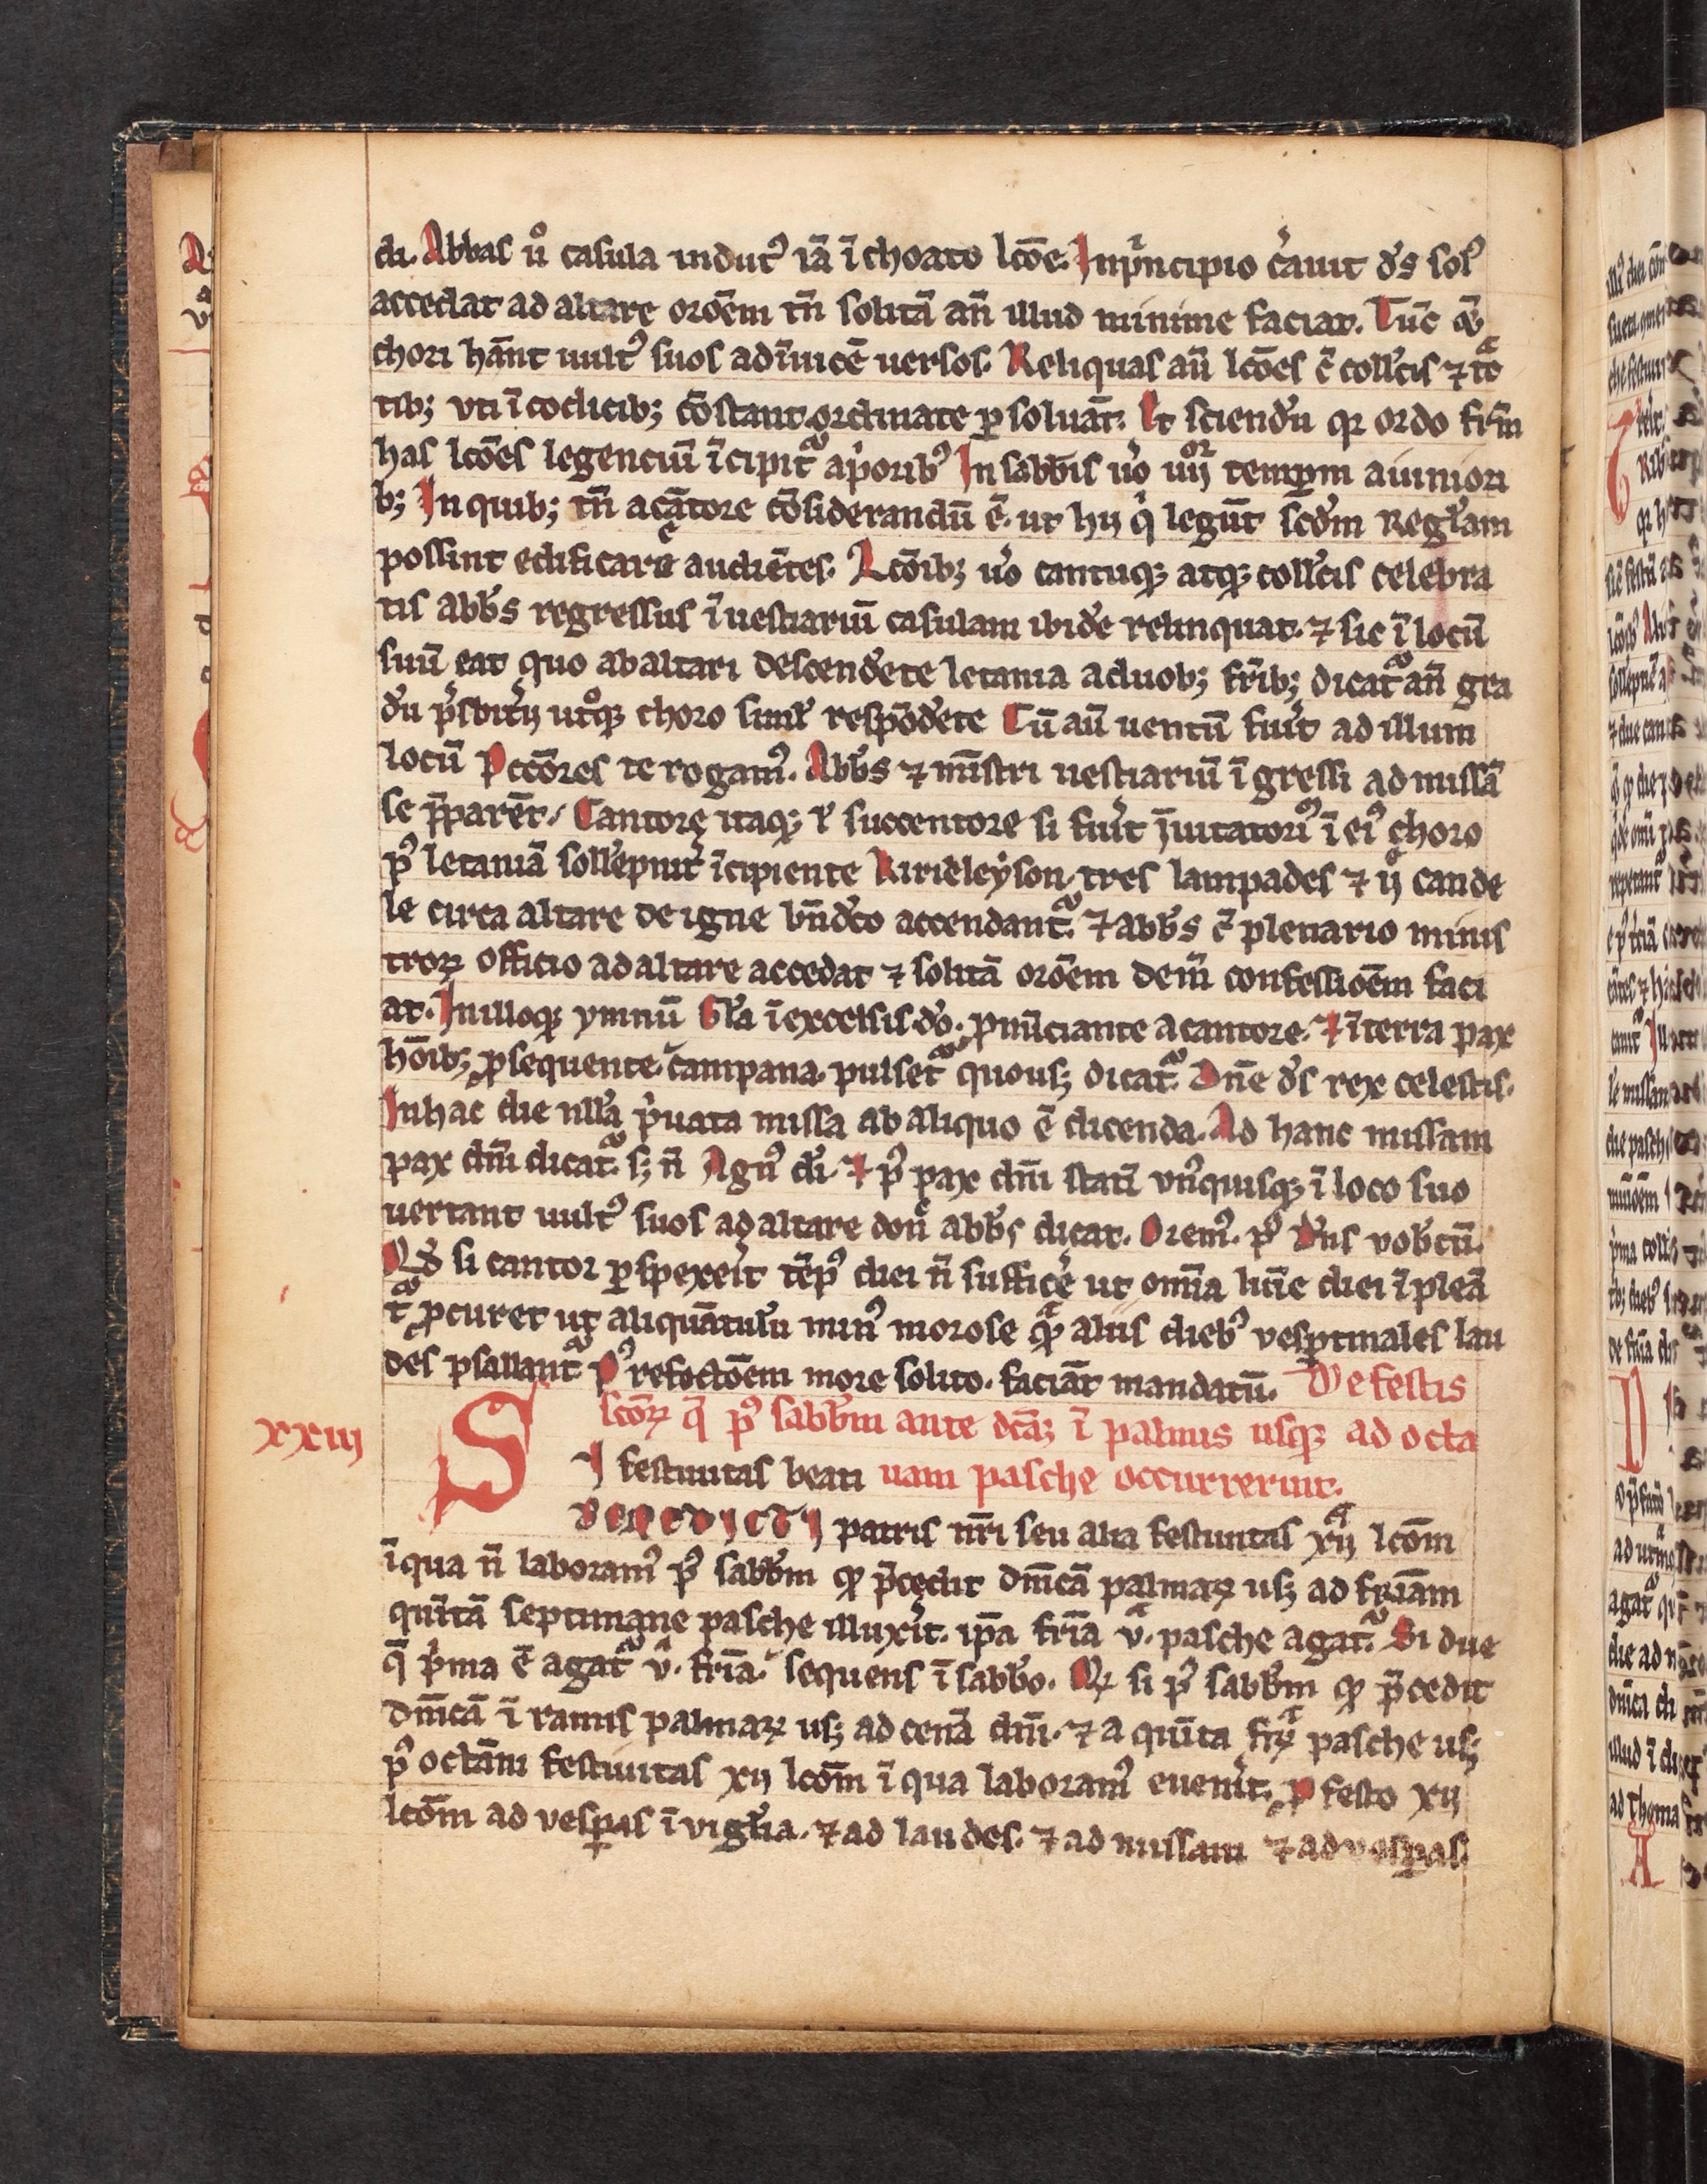 di. Abbas u͛o casula indutꝰ iā ī choato lcōe. Inpͥncipio c͛auit dꝰs solꝰ
accedat ad altare orōem tn̄ solitā an̄ illud minime faciat. Tūc
chori hān̄t uultꝰ suos adīnuicē uersos. Reliquas au̅ lcōes c̅ coll'cis ⁊
tib; vti ī codicib; cōstant ordinate ꝑ soluāt. Et sciend'u qꝛ ordo fr̄m
has lcōes legenciū īcipit᷑ ap͛oribꝰ In sabb̄is u͛o iiijᵒʳ tempꝝm a iuniori
b; In quib; tn̄ a cātore cōsiderandū ē. ut hij qͥ legūt scd'm Regl'am
possint edificare audiētes. Lcōib; u͛o cantuqꝫ atqꝫ coll'cis celebra
tis abb's regressus ī uestiariū casulam ibid'e relinquat. ⁊ sic ī locū
suū eat quo ab altari descend'ete letania a duob; fr̄ib; dicat᷑ an̄ gra
d'u p͛sbit͛ij utͦqꝫ choro simł respōd'ete Cū au̅ uentū fu͛it ad illum
locū Pccōres te rogamꝰ. Abb's ⁊ mīstri uestiariū ī gressi ad missā
se p̄parēt. Cantore itaqꝫ ł succentore si fu͛it īuitatoriꝰ ī eiꝰ choro
pꝰ letaniā soll'epnit͛ īcipiente Kirieleẏson, tres lampades ⁊ ij cande
le circa altare de igne bn̄d'co accendant᷑. ⁊ abb's c̅ plenario minis
troꝝ officio ad altare accedat ⁊ solitā orōem dem̄ confessiōem faci
at. In illoqꝫ ymnū Gl'a ī excelsis d'o. pnūciante a cantore. ⁊ ī terra pax
hōib; ꝓsequente campana. pulset᷑ quous; dicat᷑. Dn̄e d's rex celestis.
In hac die null'a p͛uata missa ab aliquo ē dicenda. Ad hanc missam
pax dn̄i dicat᷑. s; n̄ Agnꝰ d'i. ⁊ pꝰ pax dn̄i statī vnꝰquisqꝫ ī loco suo
uertant uultꝰ suos ad altare donͨ abb's dicat. Oremꝰ. pꝰ D'ns vob'cū.
Qd' si cantor ꝑspexe͛it tēpꝰ diei n̄ suffice͛ ut om̄ia hui͛e diei ī pleā
t᷑ ꝓcuret ut aliquātul'u minꝰ morose qͣꝫ aliis diebꝰ vesꝑtinales lau
des psallant᷑ Pꝰ refectōem more solito. faciāt mandatū. De festis
scōꝝ q̄ pꝰ sabb'm ante dcāꝫ ī palmis usqꝫ ad octa
xxiij
SI festiuitas beati uam pasche occurrerint.
BENEDICTI patris nr̄i seu alia festiuitas xij lcōm
ī qua n̄ laboramꝰ pꝰ sabb'm qꝫ p̄cedit dn̄icā palmaꝝ us; ad friām
quītā septimane pasche illuxe͛it. ip̄a fr̄ia v. pasche agat᷑. Si due
q̄ p͛ma ē agat᷑ v. fr̄ia. sequens ī sabb'o. Qꝫ si pꝰ sabb'm qꝫ p̄cedit
dn̄icā ī ramis palmaꝝ us; ad cenā dn̄i. ⁊ a quīta fr̄ia pasche us;
pꝰ octām festiuitas xij lcōm ī qua laboramꝰ euene͛it. ꝓ festo xij
lcōm ad vesꝑas ī vigl'ia. ⁊ ad laudes. ⁊ ad missam ⁊ ad vesꝑas.